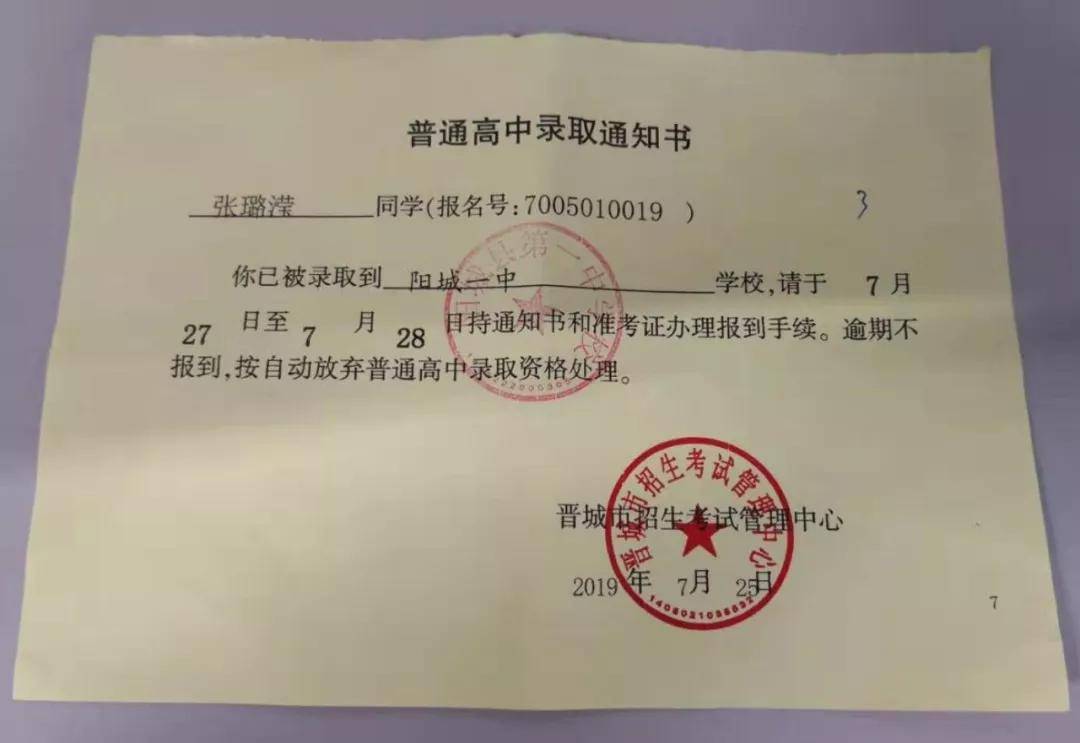 普通高中录取通知书
张璐滢 同学(报名号:7005010019 )
3
你已被录取到 阳城一中 学校,请于 7 月
27 日至 7 月 28 日持通知书和准考证办理报到手续。逾期不
报到,按自动放弃普通高中录取资格处理。
阳城县第一中学校
晋城市招生考试管理中心
晋城市招生考试管理中心
2019 年 7月 25日
7